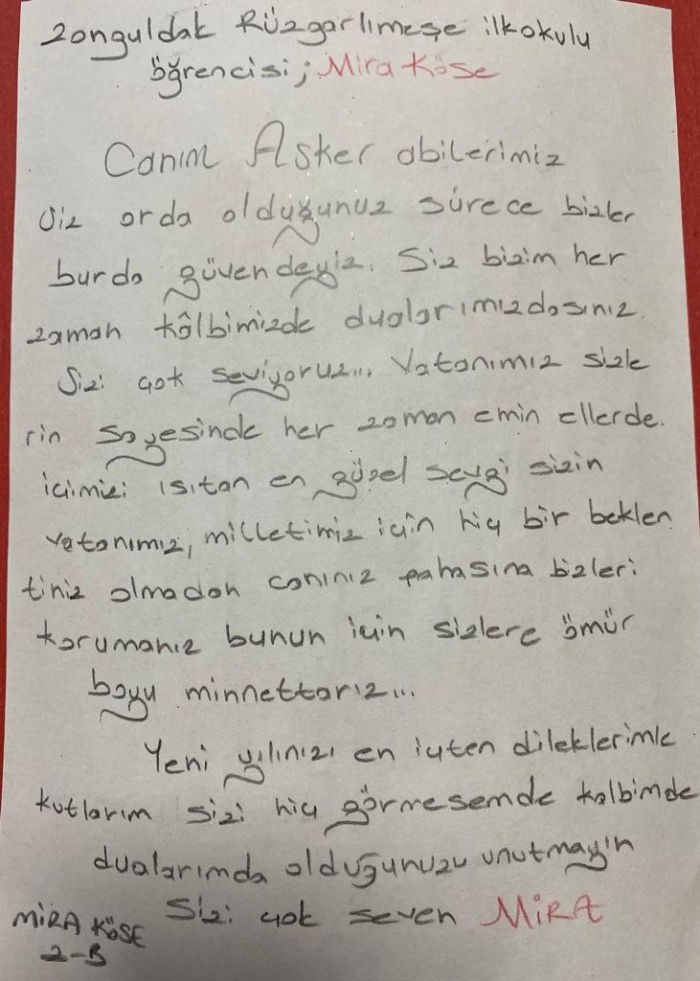 Zonguldak Rüzgarlımeşe ilkokulu
öğrencisi; Mira Köse
Canım Asker abilerimiz
Siz orda olduğunuz sürece bizler
burda güvendeyiz. Siz bizim her
zaman kâlbimizde dualarımızdasınız.
Sizi çok seviyoruz... Vatanımız sizle
rin sayesinde her zaman emin ellerde.
içimizi ısıtan en güzel sevgi sizin
vatanımız, milletimiz için hiç bir beklen
tiniz olmadan canınız pahasına bizleri
korumanız bunun için sizlere ömür
boyu minnettarız...
Yeni yılınızı en içten dileklerimle
kutlarım sizi hiç görmesemde kalbimde
dualarımda olduğunuzu unutmayın
Sizi çok seven MiRA
MiRA KÖSE
2-B